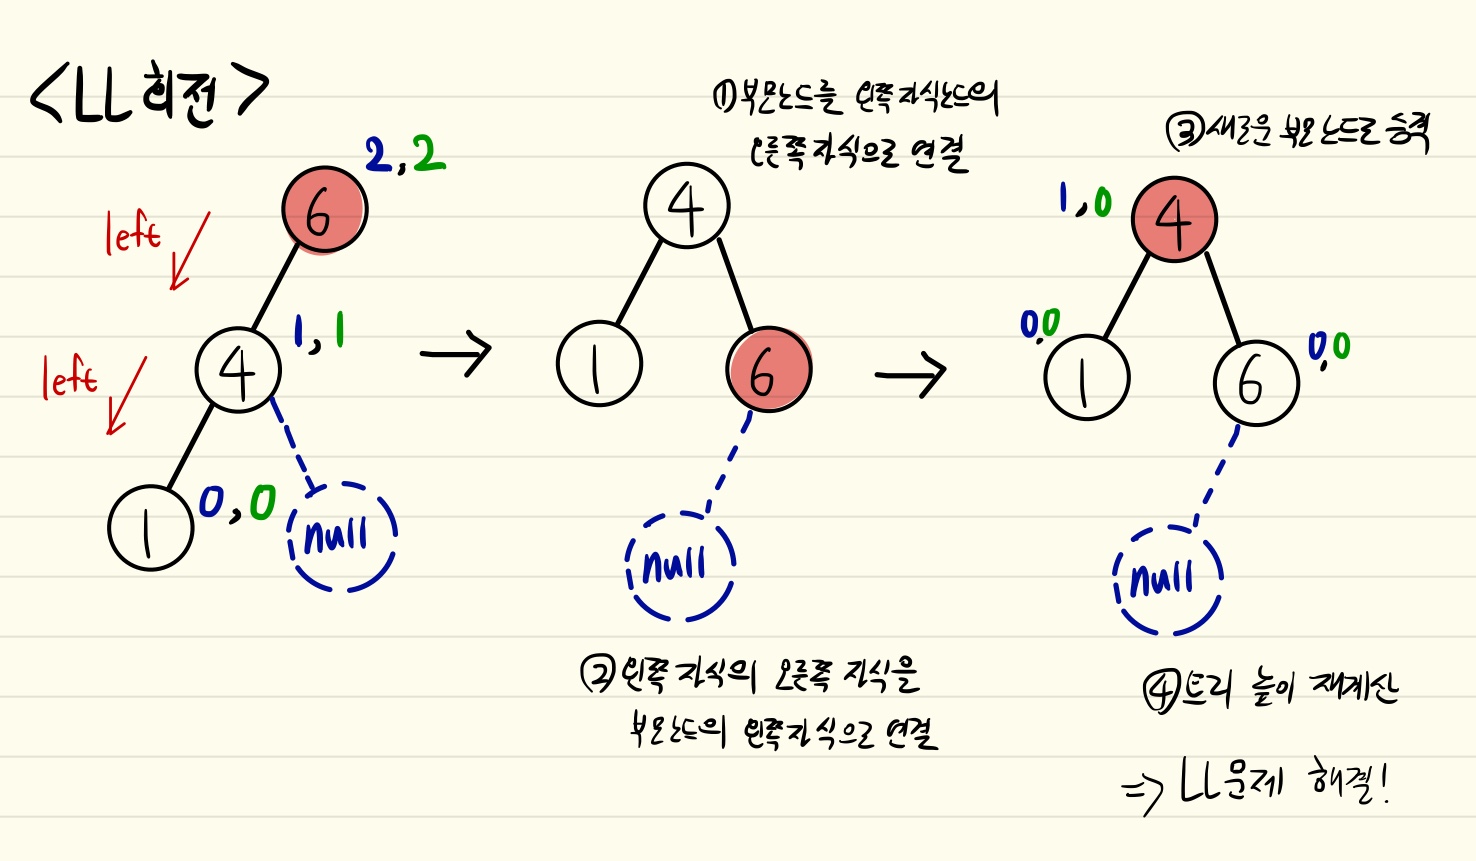 <LL 회전>
2,2
6
left
4
1,1
left
1
0,0
null
①부모노드를 왼쪽 자식노드의
오른쪽 자식으로 연결
4
1
6
null
②왼쪽 자식의 오른쪽 자식을
부모노드의 왼쪽자식으로 연결
③새로운 부모노드로 승격
1,0
4
0,0
1
6
0,0
null
④트리 높이 재계산
=> LL문제 해결!